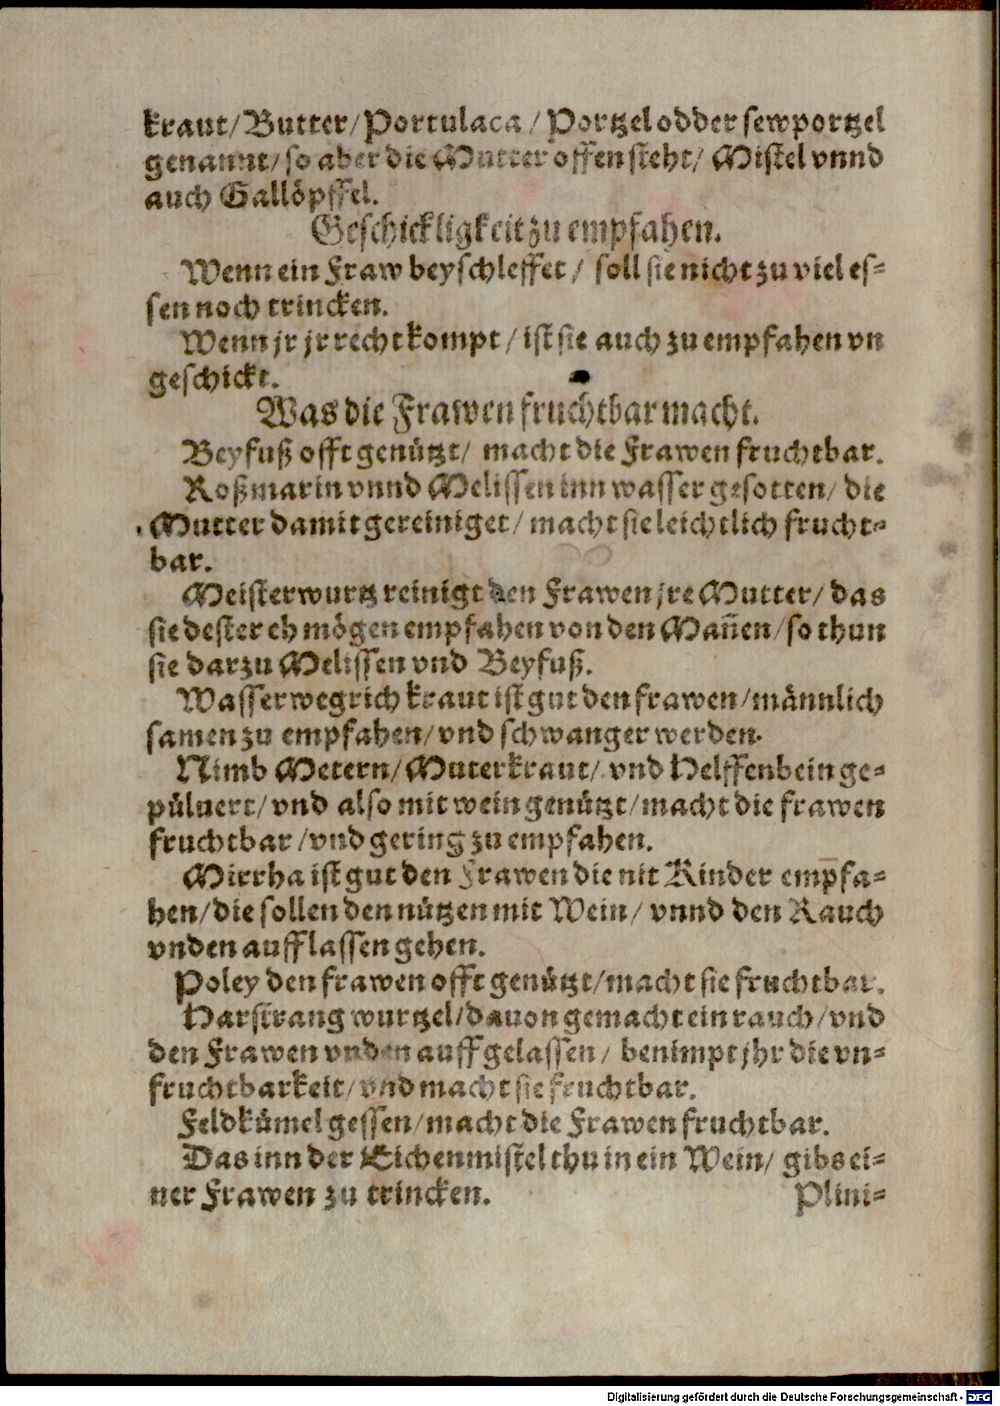 kraut/ Butter/ Portulaca / Portzel odder sewportzel
genannt/ so aber die Mutter offen steht/ Mistel vnnd
auch Gallöpffel.
Geschickligkeit zu empfahen.
Wenn ein Fraw beyschleffet / soll sie nicht zu viel es=
sen noch trincken.
Wenn jr jr recht kompt / ist sie auch zu empfahen vn
geschickt.
Was die Frawen fruchtbar macht.
Beyfuß offt genützt/ macht die Frawen fruchtbar.
Roßmarin vnnd Melissen inn wasser gesotten/ die
Mutter damit gereiniget / macht sie leichtlich frucht=
bar.
Meisterwurtz reinigt den Frawen jre Mutter/ das
sie dester eh mögen empfahen von den Mañen / so thun
sie darzu Melissen vnd Beyfuß.
Wasser wegrich kraut ist gut den frawen / männlich
samen zu empfahen/ vnd schwanger werden.
Nimb Metern/ Muterkraut/ vnd Helffenbein ge=
püluert/ vnd also mit wein genützt/ macht die frawen
fruchtbar / vnd gering zu empfahen.
Mirrha ist gut den Frawen die nit Kinder empfa=
hen/ die sollen den nützen mit Wein/ vnnd den Rauch
vnden aufflassen gehen.
Poley den frawen offt genützt/ macht sie fruchtbar.
Harstrang wurtzel/ dauon gemacht ein rauch / vnd
den Frawen vnden auff gelassen / benimpt jhr die vn=
fruchtbarkeit/ vnd macht sie fruchtbar.
Feldkümel gessen/ macht die Frawen fruchtbar.
Das inn der Eichenmistel thu in ein Wein/ gibs ei=
ner Frawen zu trincken.
Plini=
Digitalisierung gefördert durch die Deutsche Forschungsgemeinschaft - DFG